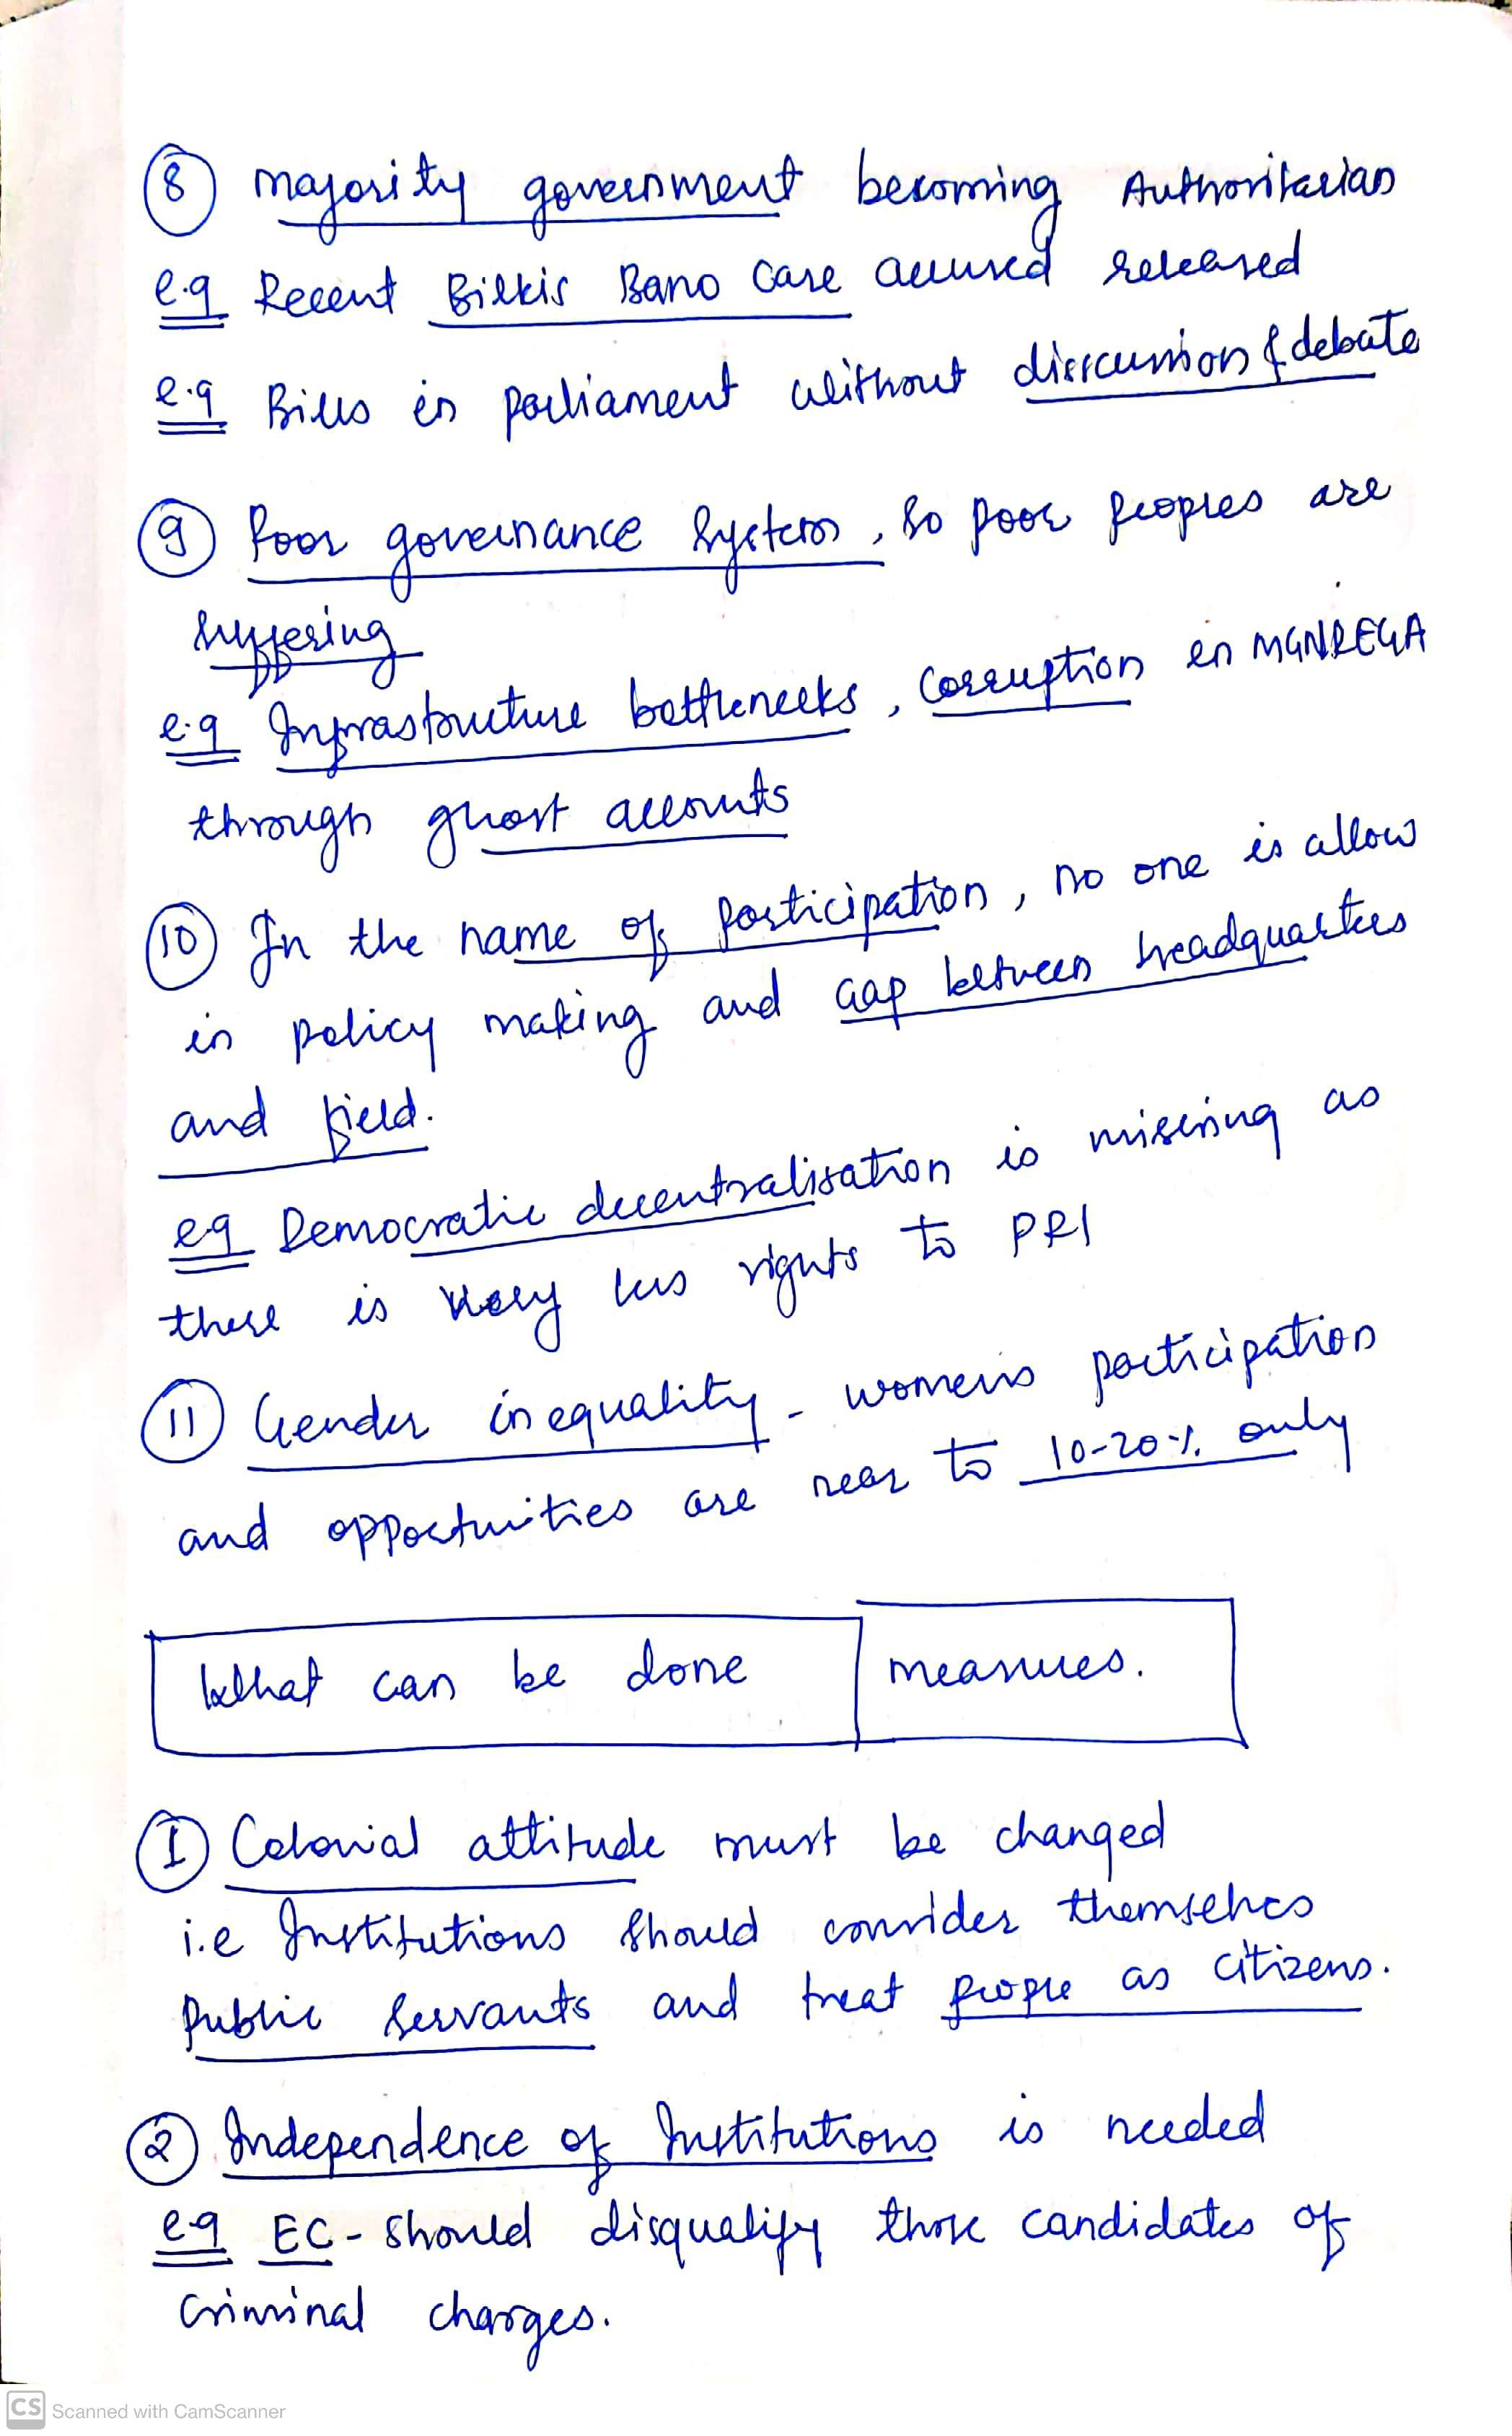 ⑧ majority government becoming Authoritarian
e.g Recent Bilkis Bano case accused released
e.g Bills in parliament without disscussion & debate
⑨ Poor governance system, so poor peoples are
suffering
e.g Infrastructure bottlenecks, corruption in MGNREGA
through ghost accounts
⑩ In the name of participation, no one is allow
in policy making and gap between headquarters
and field.
eg Democratic decentralisation is missing as
there is very less rights to PRI
⑪ Gender inequality - women's participation
and opportunities are near to 10-20% only
What can be done measures.
① Colonial attitude must be changed
i.e Institutions should consider themselves
public servants and treat people as citizens.
② Independence of Institutions is needed
eg EC - should disqualify those candidates of
criminal charges.
CS Scanned with CamScanner